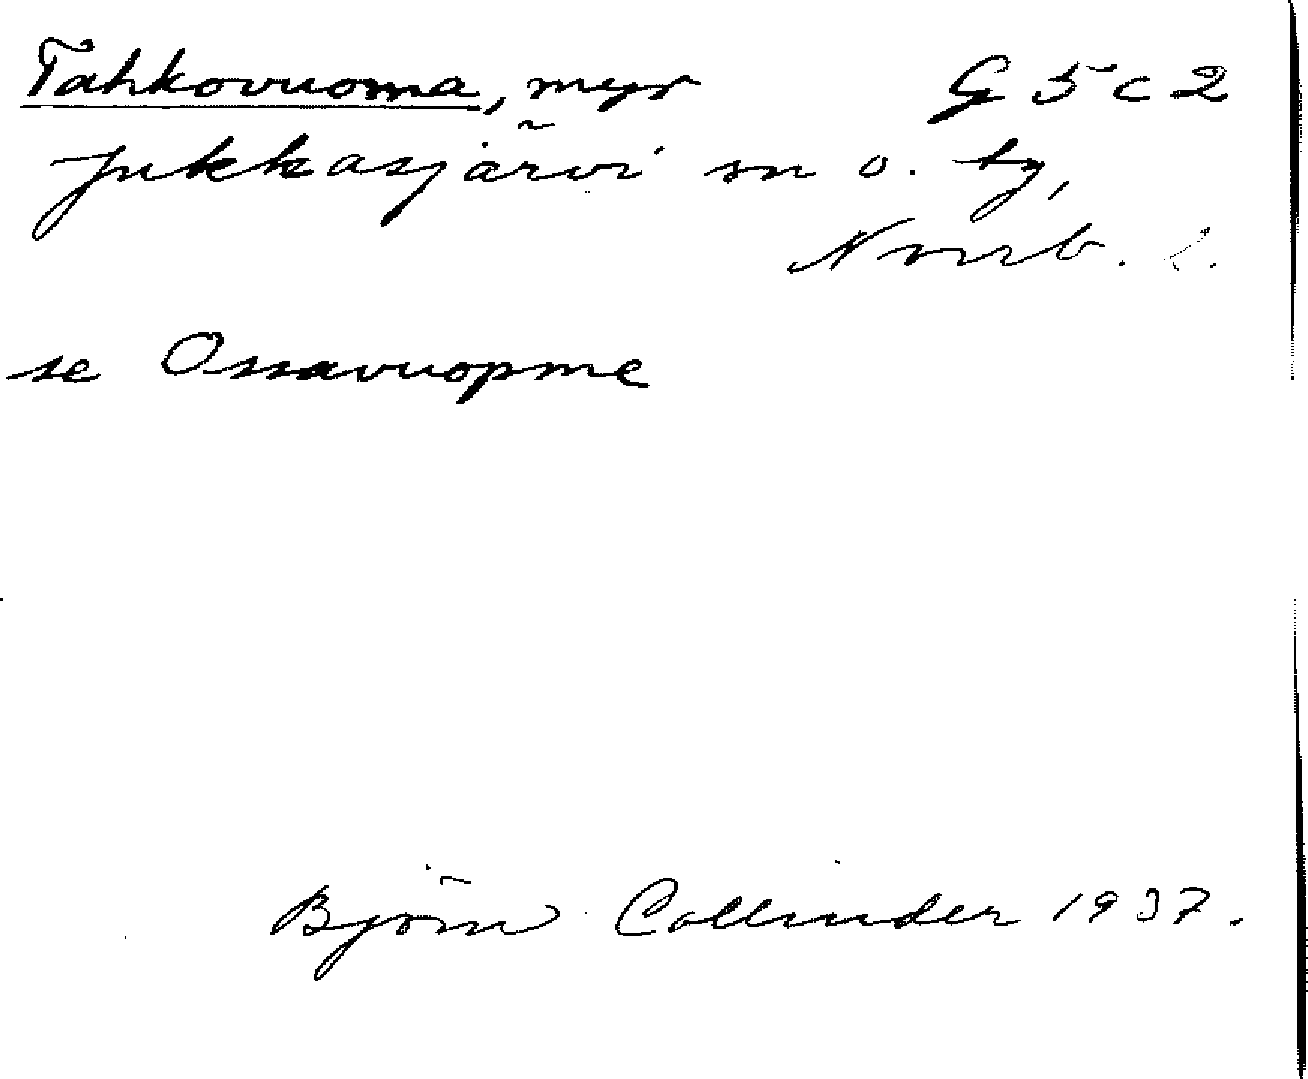 Tahkovuoma, myr G 5 c 2
Jukkasjärvi sn o. tg,
Norrb. l.
se Ossavuopme
Björn Collinder 1937.